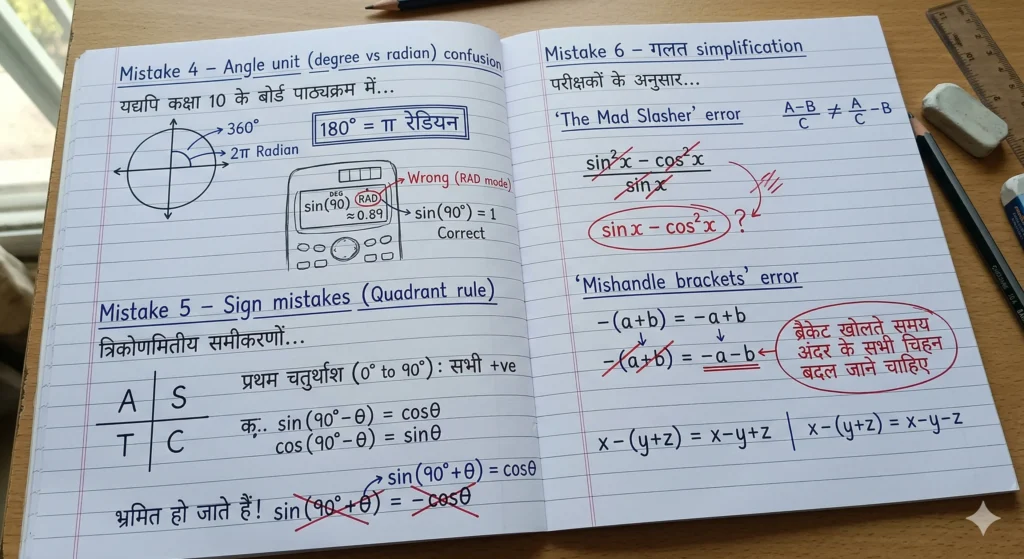 Mistake 4 – Angle unit (degree vs radian) confusion
यद्यपि कक्षा 10 के बोर्ड पाठ्यक्रम में...
360°
2π Radian
180° = π रेडियन
DEG
sin(90) RAD
≈0.89
Wrong (RAD mode)
sin(90°) = 1
Correct
Mistake 5 – Sign mistakes (Quadrant rule)
त्रिकोणमितीय समीकरणों...
A S
T C
प्रथम चतुर्थांश (0° to 90°): सभी +ve
क.. sin(90°-θ) = cosθ
cos(90°-θ) = sinθ
sin(90°+θ) = cosθ
भ्रमित हो जाते हैं! sin(90°+θ) = -cosθ
Mistake 6 – गलत simplification
परीक्षकों के अनुसार...
'The Mad Slasher' error
A-B/C ≠ A/C -B
sin²x - cos²x
sin x
sin x - cos²x ?
'Mishandle brackets' error
-(a+b) = -a+b
-(a+b) = -a-b
ब्रैकेट खोलते समय
अंदर के सभी चिहन
बदल जाने चाहिए
x-(y+z) = x-y+z | x-(y+z) = x-y-z